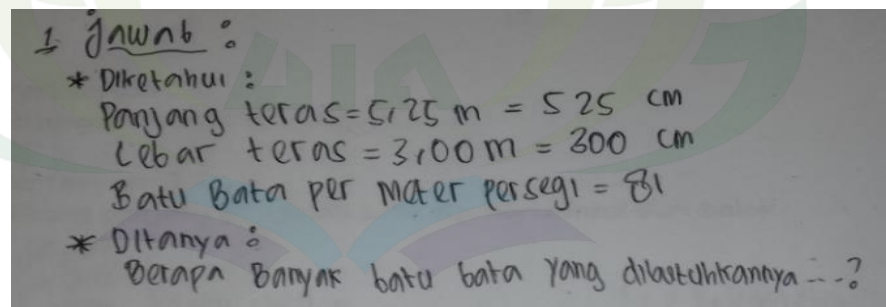 1. Jawab :
* Diketahui :
Panjang teras = 5,25 m = 525 cm
Lebar teras = 3,00 m = 300 cm
Batu Bata per meter persegi = 81
* Ditanya :
Berapa Banyak batu bata yang dibutuhkannya ...?